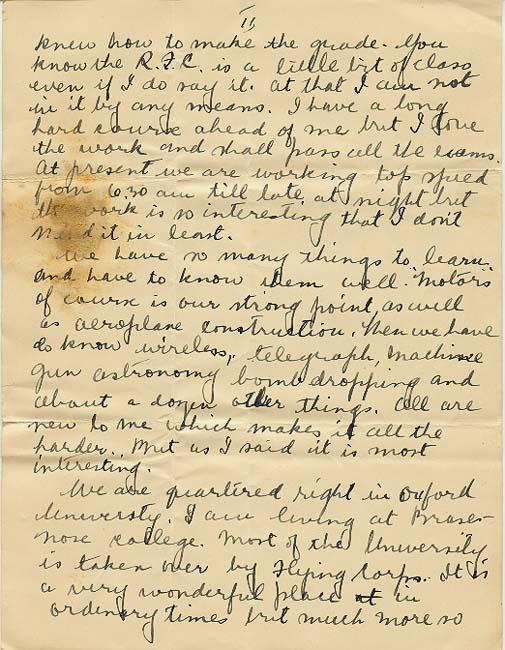 11
knew how to make the grade. You
know the R.F.C. is a little bit of class
even if I do say it. At that I am not
in it by any means. I have a long
hard course ahead of me but I love
the work and shall pass all the exams.
At present we are working top speed
from 6.30 am till late at night but
the work is so interesting that I don't
mind it in least.
We have so many things to learn
and have to know them well. Motors
of course is our strong point as well
as aeroplane construction. Then we have
to know wireless, telegraph, machine
gun astronomy bomb dropping and
about a dozen other things. All are
new to me which makes it all the
harder. But as I said it is most
interesting.
We are quartered right in Oxford
University. I am living at Brase-
nose college. Most of the University
is taken over by Flying Corps. It is
a very wonderful place in
ordinary times but much more so